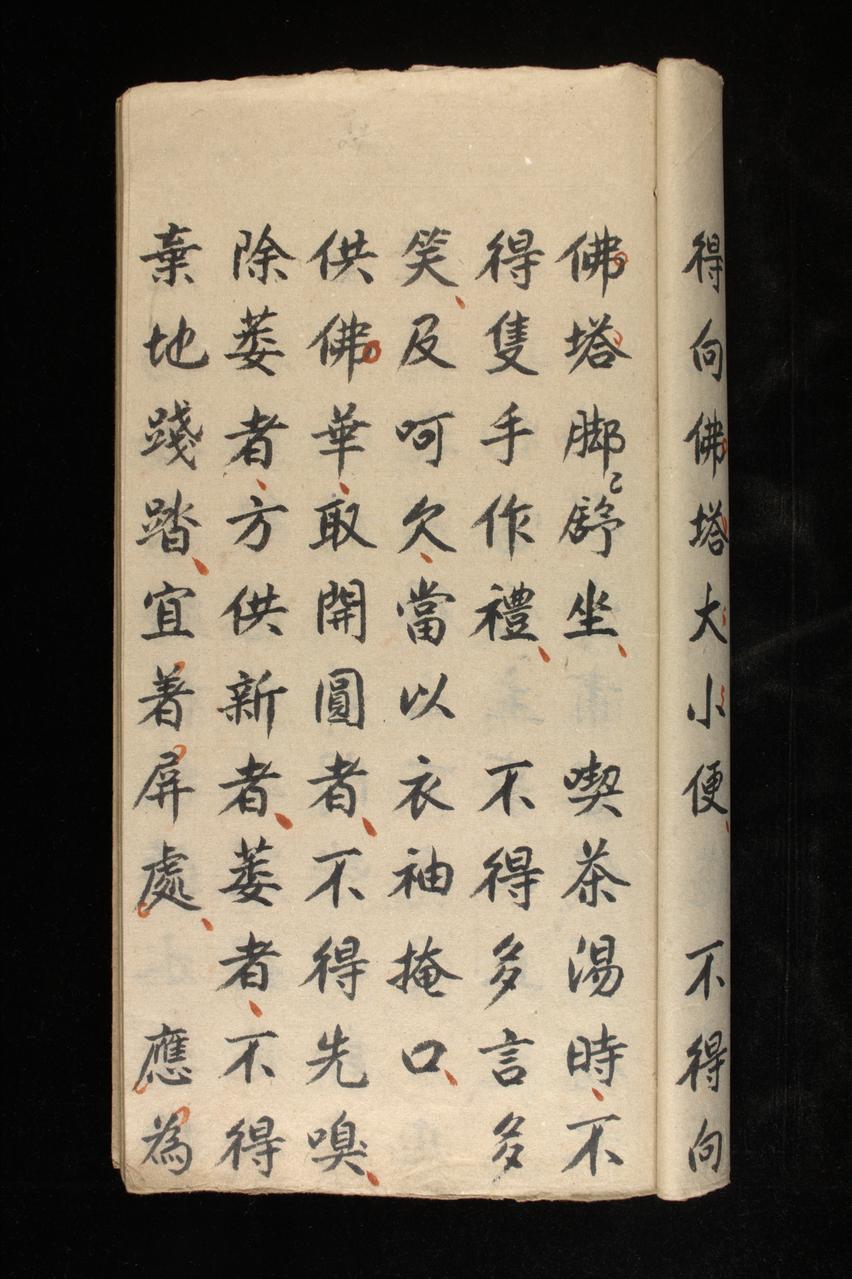 得向佛塔大小便 不得向
佛塔脚〻舒坐 喫茶湯時不
得隻手作禮 不得多言多
笑及呵欠當以衣袖掩口
供佛華取開圓者不得先嗅
除萎者方供新者萎者不得
棄地踐踏宜著屏處 應為